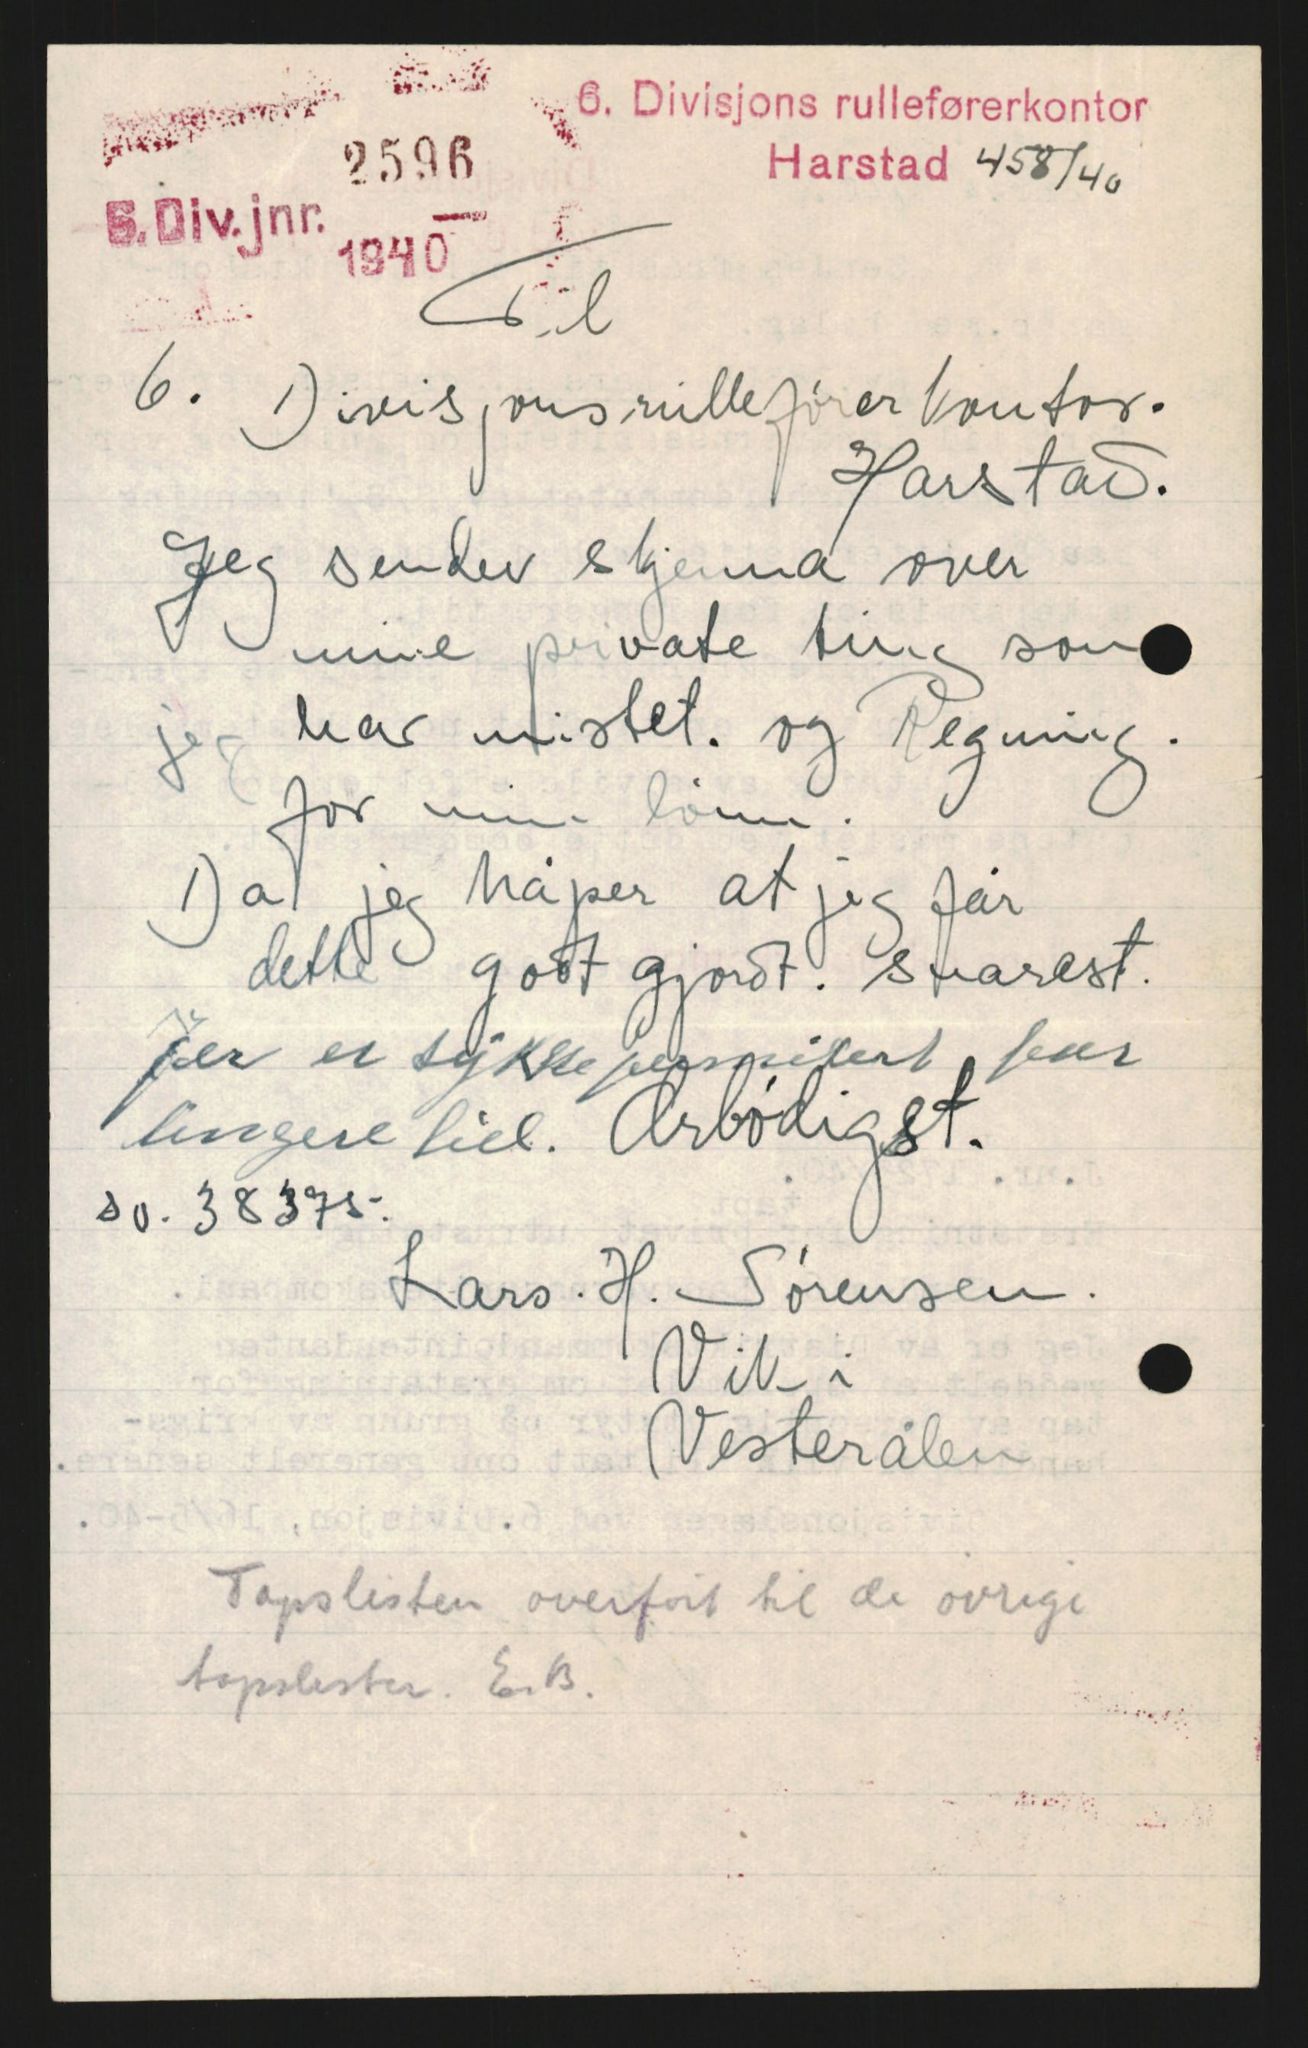 6. Divisjons rulleførerkontor
Harstad 458/40
2596
6. Div. jnr. 1940
Til
6. Divisjonsrulleførerkontor.
Harstad.
Jeg sender skjema over
mine private ting som
jeg har mistet. og Regning.
for min lönn.
Da jeg håper at jeg får
dette godt gjordt. snarest.
Jer er sykke permitert for
lengere tid. Ærbødigst.
so. 38375.
Lars. H. Sørensen.
Vik i
Vesterålen
Tapslisten overført til de øvrige
tapslister. E.B.